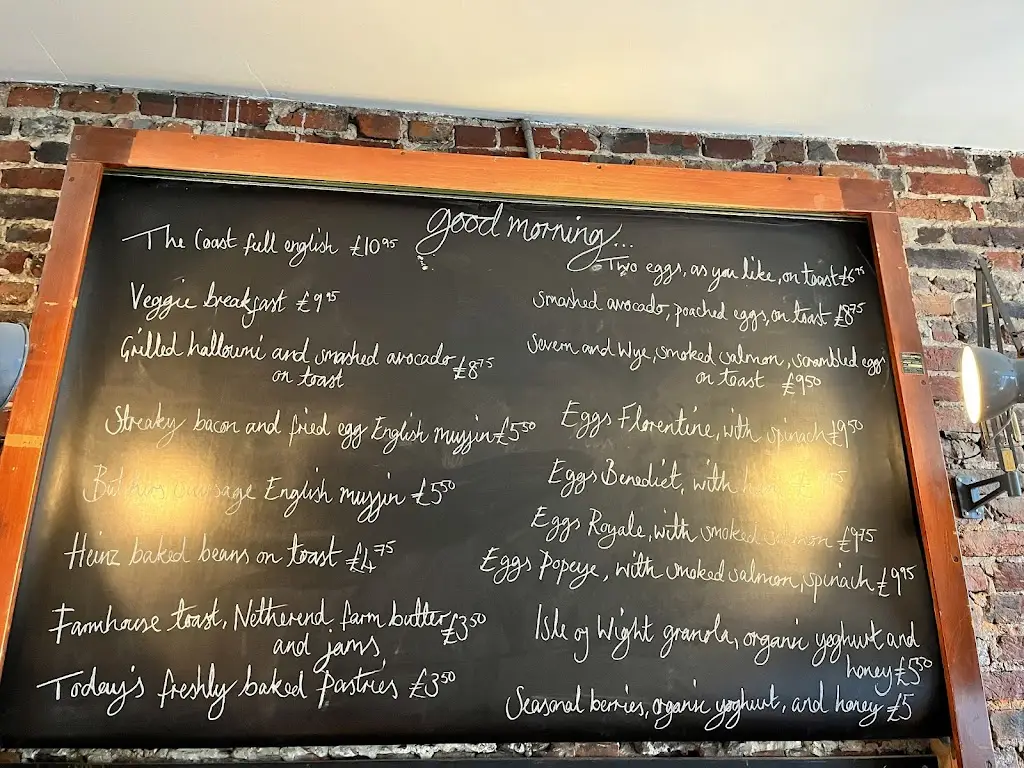 good morning...
The Coast full english £10.95
Veggie breakfast £9.95
Grilled halloumi and smashed avocado £8.75
on toast
Streaky bacon and fried egg English muffin £5.50
sausage English muffin £5.50
Heinz baked beans on toast £4.75
Farmhouse toast, Netherend farm butter £3.50
and jams
Today's freshly baked pastries £3.50
Two eggs, as you like, on toast £6.95
Smashed avocado, poached eggs, on toast £8.75
Severn and Wye, smoked salmon, scrambled eggs
on toast £9.50
Eggs Florentine, with spinach £9.50
Eggs Benedict, with
Eggs Royale, with smoked salmon £9.75
Eggs Popeye, with smoked salmon, spinach £9.95
Isle of Wight granola, organic yoghurt and
honey £5.50
Seasonal berries, organic yoghurt, and honey £5